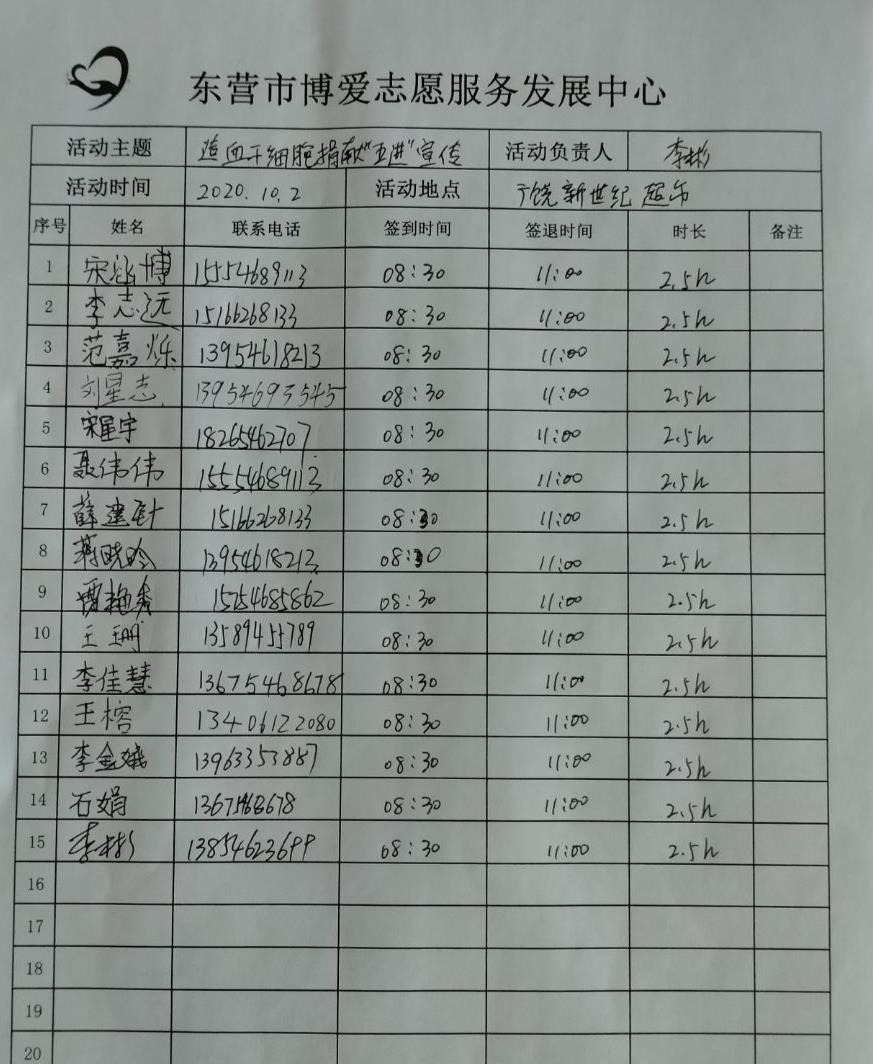 东营市博爱志愿服务发展中心
活动主题 造血干细胞捐献"五进"宣传 活动负责人 李彬
活动时间 2020.10.2 活动地点 广饶新世纪超市
序号 姓名 联系电话 签到时间 签退时间 时长 备注
1 宋涵博 15554689113 08:30 11:00 2.5h
2 李志远 15166268133 08:30 11:00 2.5h
3 范嘉烁 13954618213 08:30 11:00 2.5h
4 刘星志 13954693545 08:30 11:00 2.5h
5 宋星宇 18265462707 08:30 11:00 2.5h
6 聂伟伟 15554689113 08:30 11:00 2.5h
7 薛建 15166268133 08:30 11:00 2.5h
8 蒋晓玲 13954618213 08:30 11:00 2.5h
9 15254685862 08:30 11:00 2.5h
10 王珊 13589455789 08:30 11:00 2.5h
11 李佳慧 13675468678 08:30 11:00 2.5h
12 王榕 13406122080 08:30 11:00 2.5h
13 李金娥 13963353887 08:30 11:00 2.5h
14 石娟 13675468678 08:30 11:00 2.5h
15 李彬 13854623699 08:30 11:00 2.5h
16
17
18
19
20